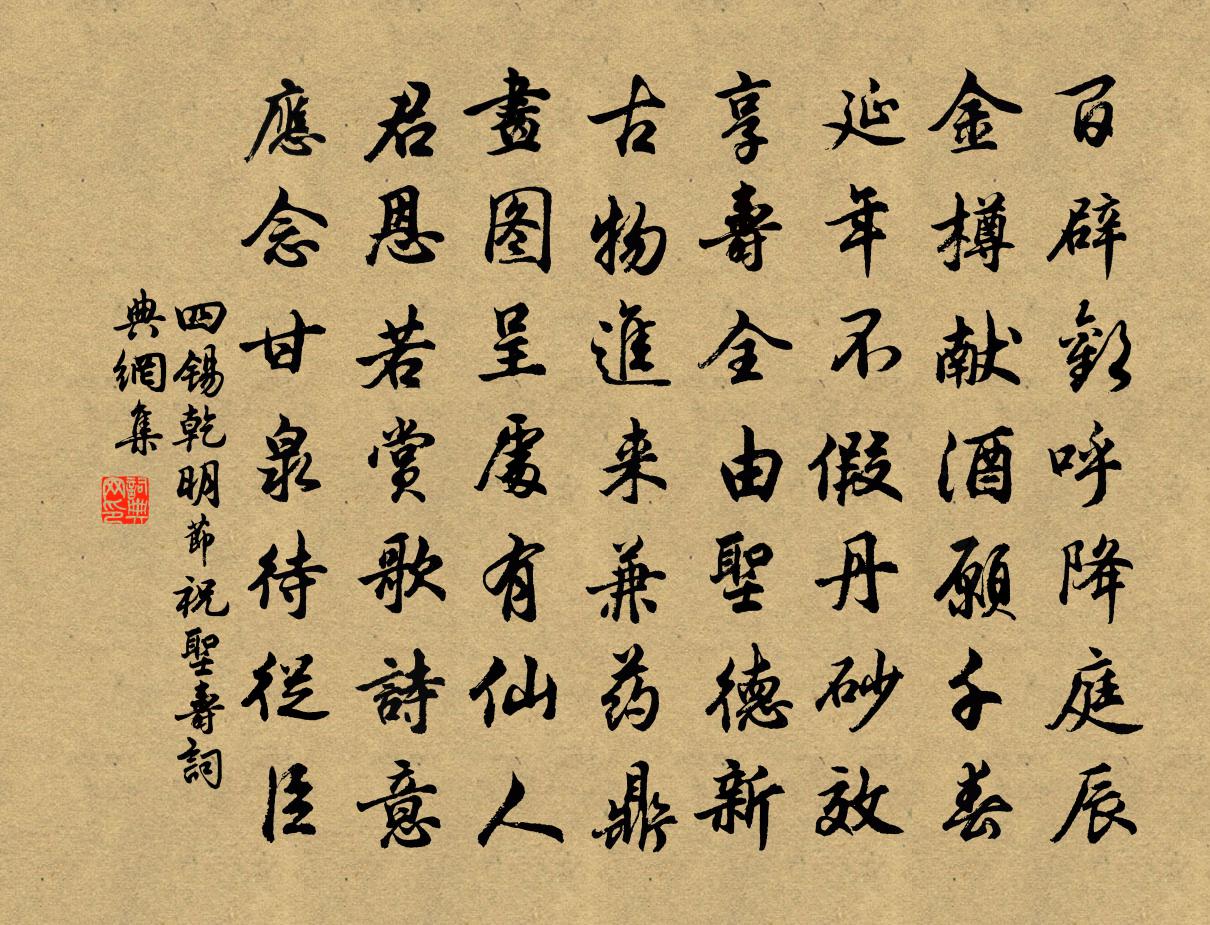 百辟歡呼降庭辰
金樽献酒願千春
延年不假丹砂效
享壽全由聖德新
古物進来兼药鼎
畫图呈處有仙人
君恩若赏歌詩意
應念甘泉待從臣
四锡乾明節祝聖壽詞
典網集
詞典网印